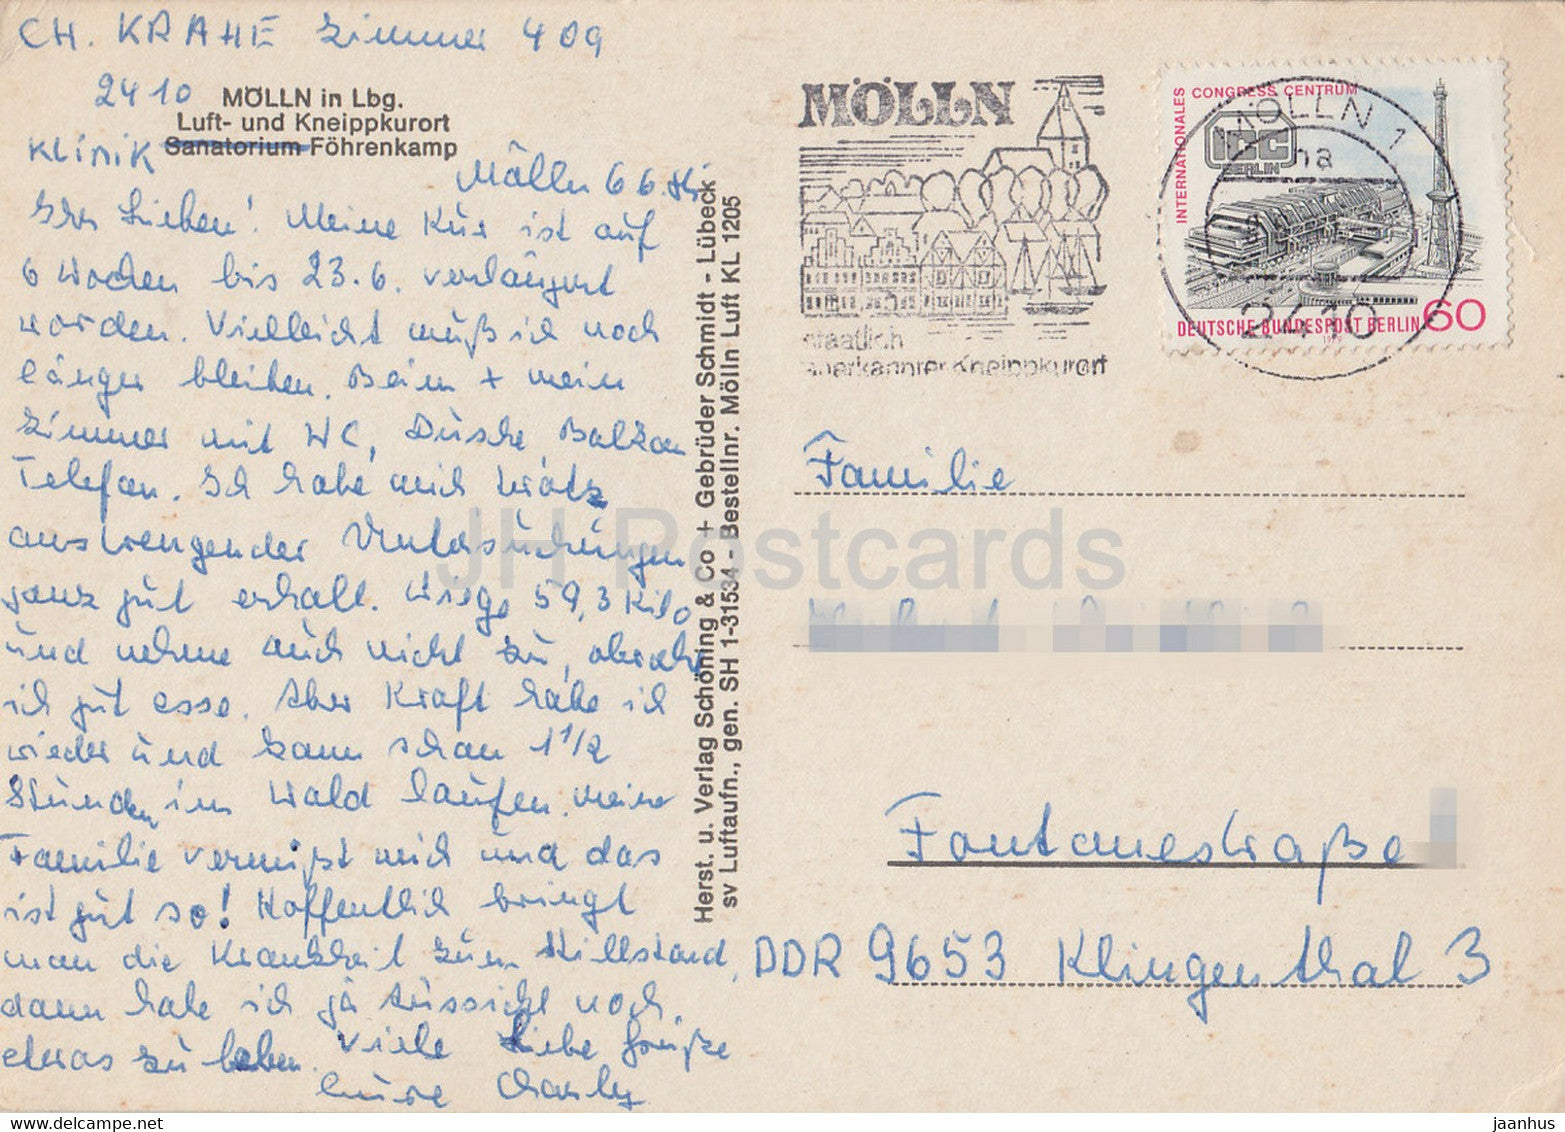 CH. KRAHE Zimmer 409
2410 MÖLLN in Lbg.
Luft- und Kneippkurort
Klinik Sanatorium Föhrenkamp
Mölln 6 6
Ihr Lieben! Meine Kur ist auf
6 Wochen bis 23.6. verlängert
worden. Vielleicht muß ich noch
länger bleiben. Beim + mein
Zimmer mit WC, Dusche, Balkon
Telefon. Ich habe mich trotz
anstrengender Untersuchungen
ganz gut erholt. Wiege 59,3 Kilo
und nehme auch nicht zu, obwohl
ich gut esse. Aber Kraft habe ich
wieder und kann schon 1 1/2
Stunden im Wald laufen. Meine
Familie vermißt mich und das
ist gut so! Hoffentlich bringt
man die Krankheit zum Stillstand,
dann habe ich ja Aussicht noch
etwas zu leben. Viele liebe Grüße
Eure Charly
Herst. u. Verlag Schöning & Co + Gebrüder Schmidt - Lübeck
sv Luftaufn., gen. SH 1-31534 - Bestellnr. Mölln Luft KL 1205
MÖLLN
staatlich
anerkannter Kneippkurort
MÖLLN 1
ha
2410
INTERNATIONALES CONGRESS CENTRUM
ICC
BERLIN
DEUTSCHE BUNDESPOST BERLIN 60
1979
Familie
Fontanestraße
DDR 9653 Klingenthal 3
JH Postcards
jaanhus
www.hipstamp.com